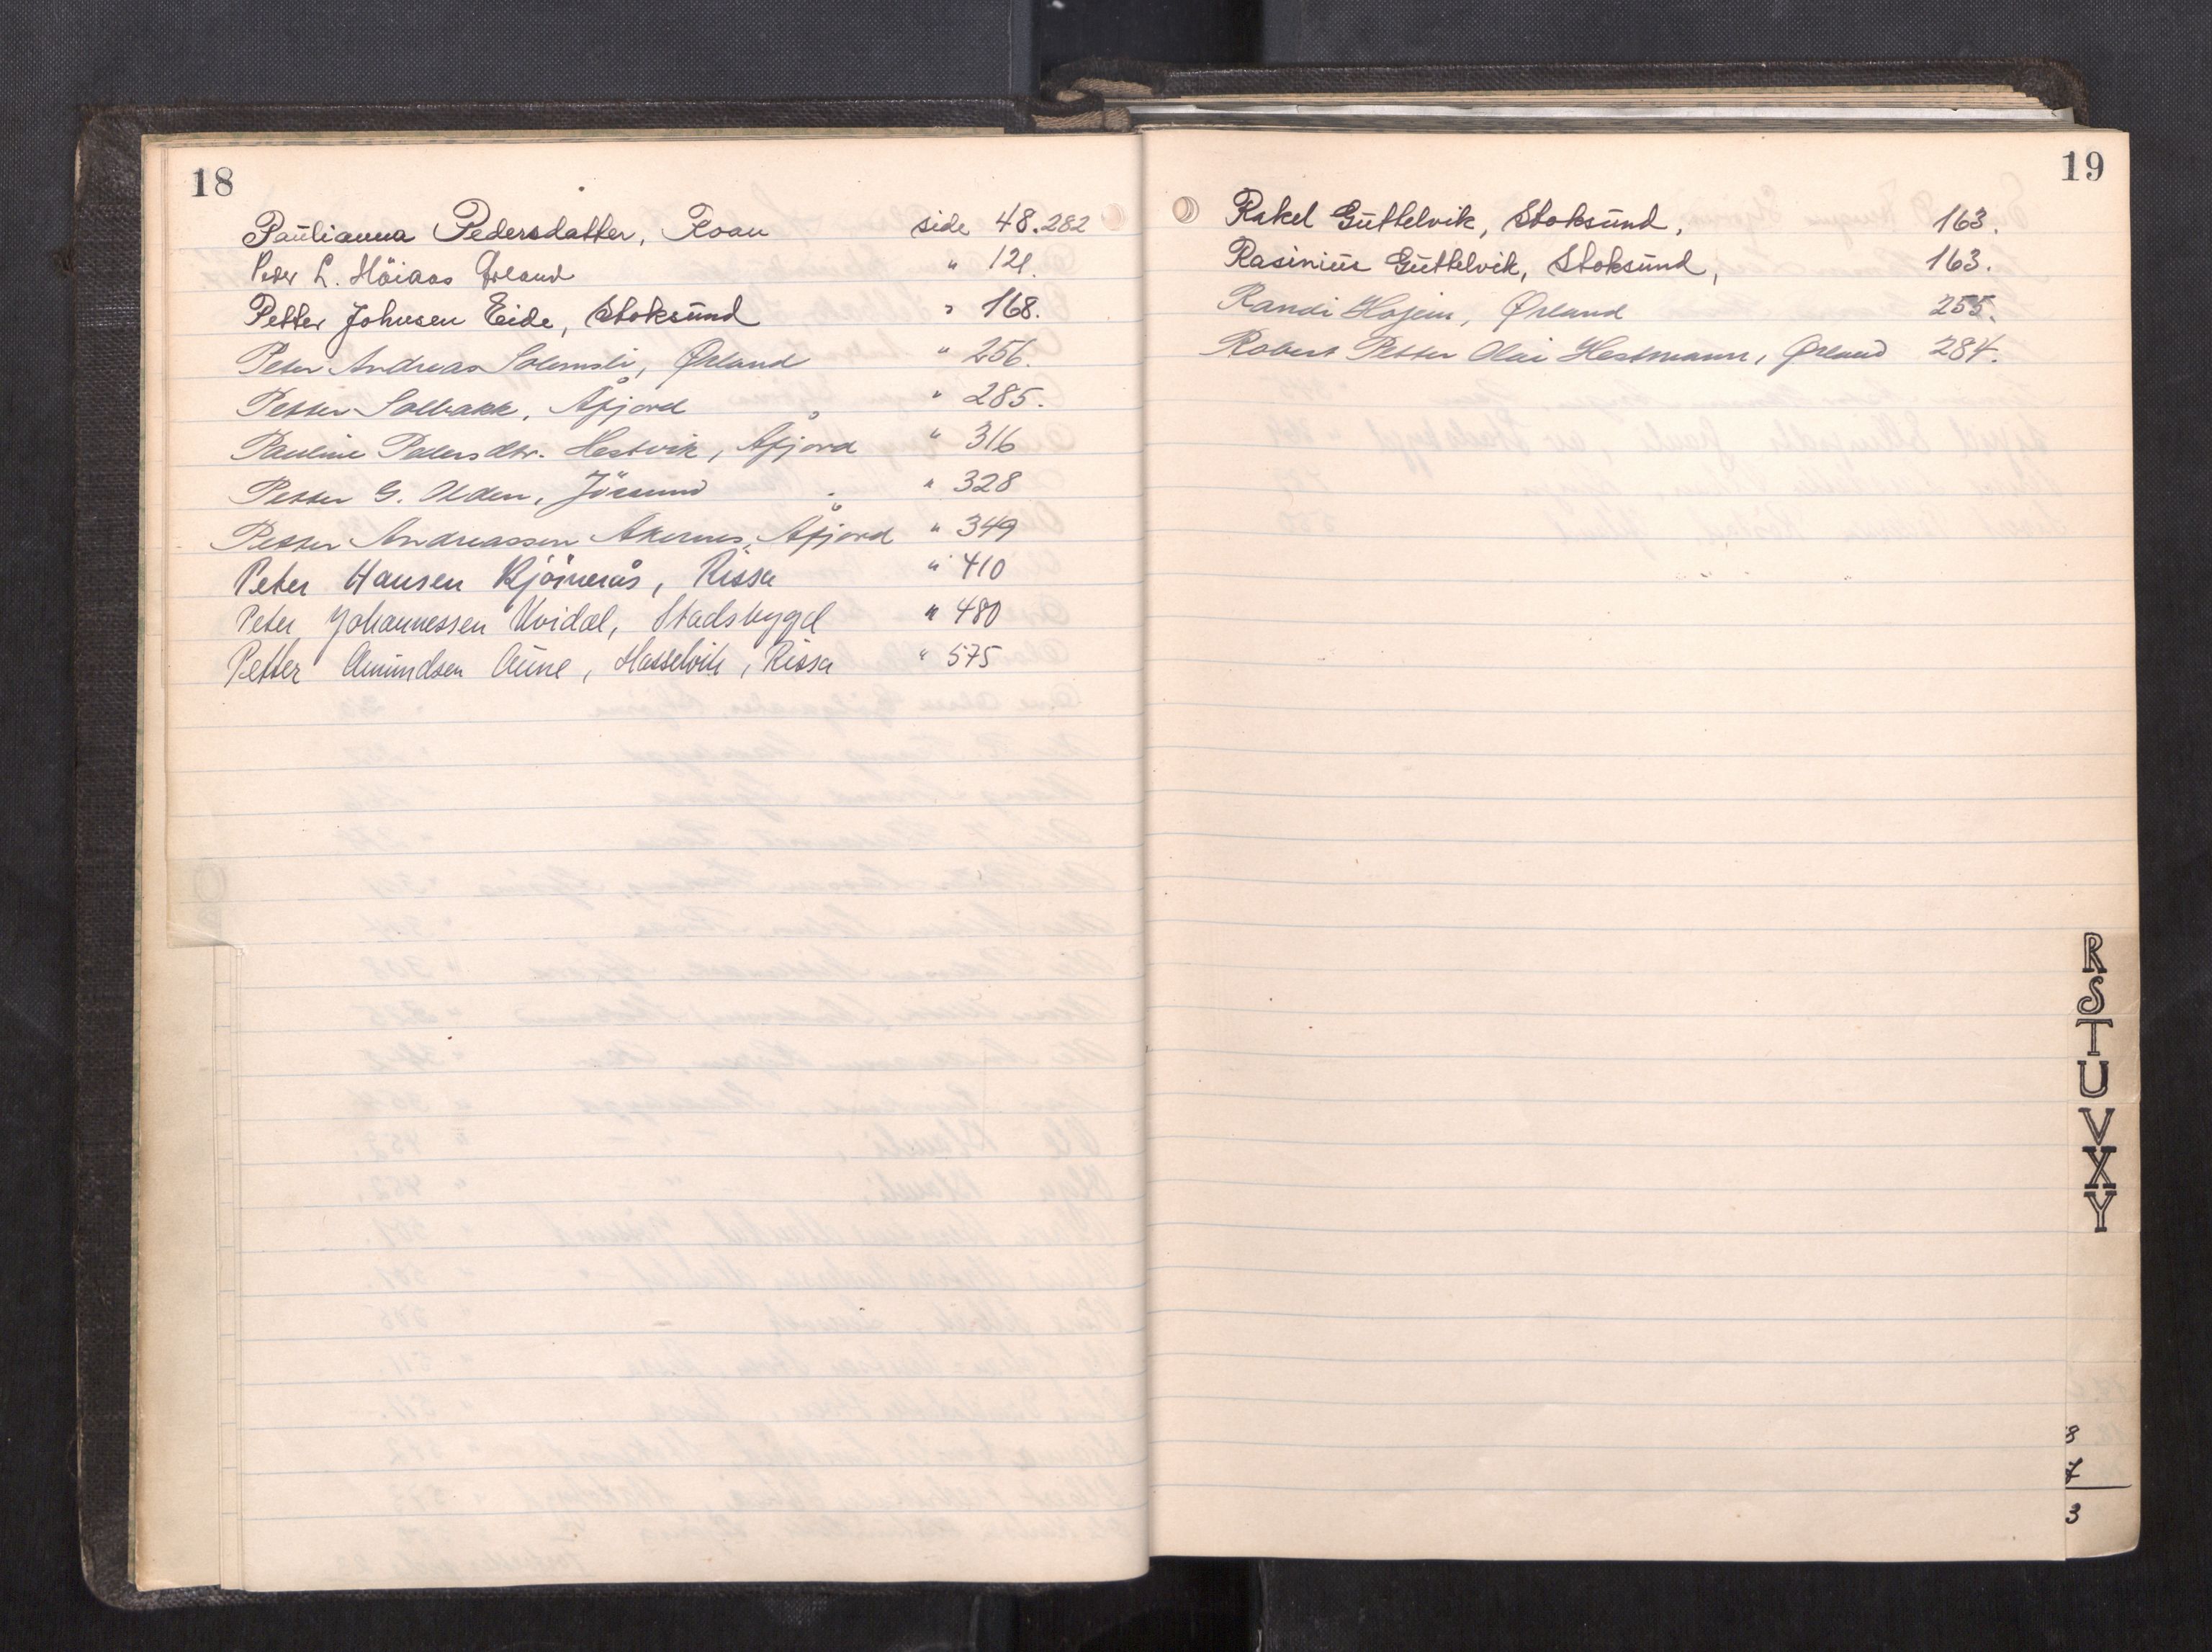 18
Paulianna Pedersdatter, Roan side 48. 282
Peder L. Höiaas Örland " 121.
Petter Johnsen Eide, Stoksund " 168.
Peter Andreas Solemsli, Ørland " 256.
Petter Solbakk, Åfjord " 285.
Pauline Pedersdtr. Hestvik, Åfjord " 316
Petter G. Olden, Jössund " 328
Petter Andreassen Akernes, Åfjord " 349
Peter Hansen Kjöinerås, Rissa " 410
Peter Johannessen Kvidal, Stadsbygd " 480
Petter Amundsen Aune, Hasselvik, Rissa " 575
19
Rakel Guttelvik, Stoksund, 163.
Rasinius Guttelvik, Stoksund, 163.
Randi Hojem, Ørland 255.
Robert Petter Olai Hestmann, Ørland 284.
R
S
T
U
V
X
Y
8
7
3